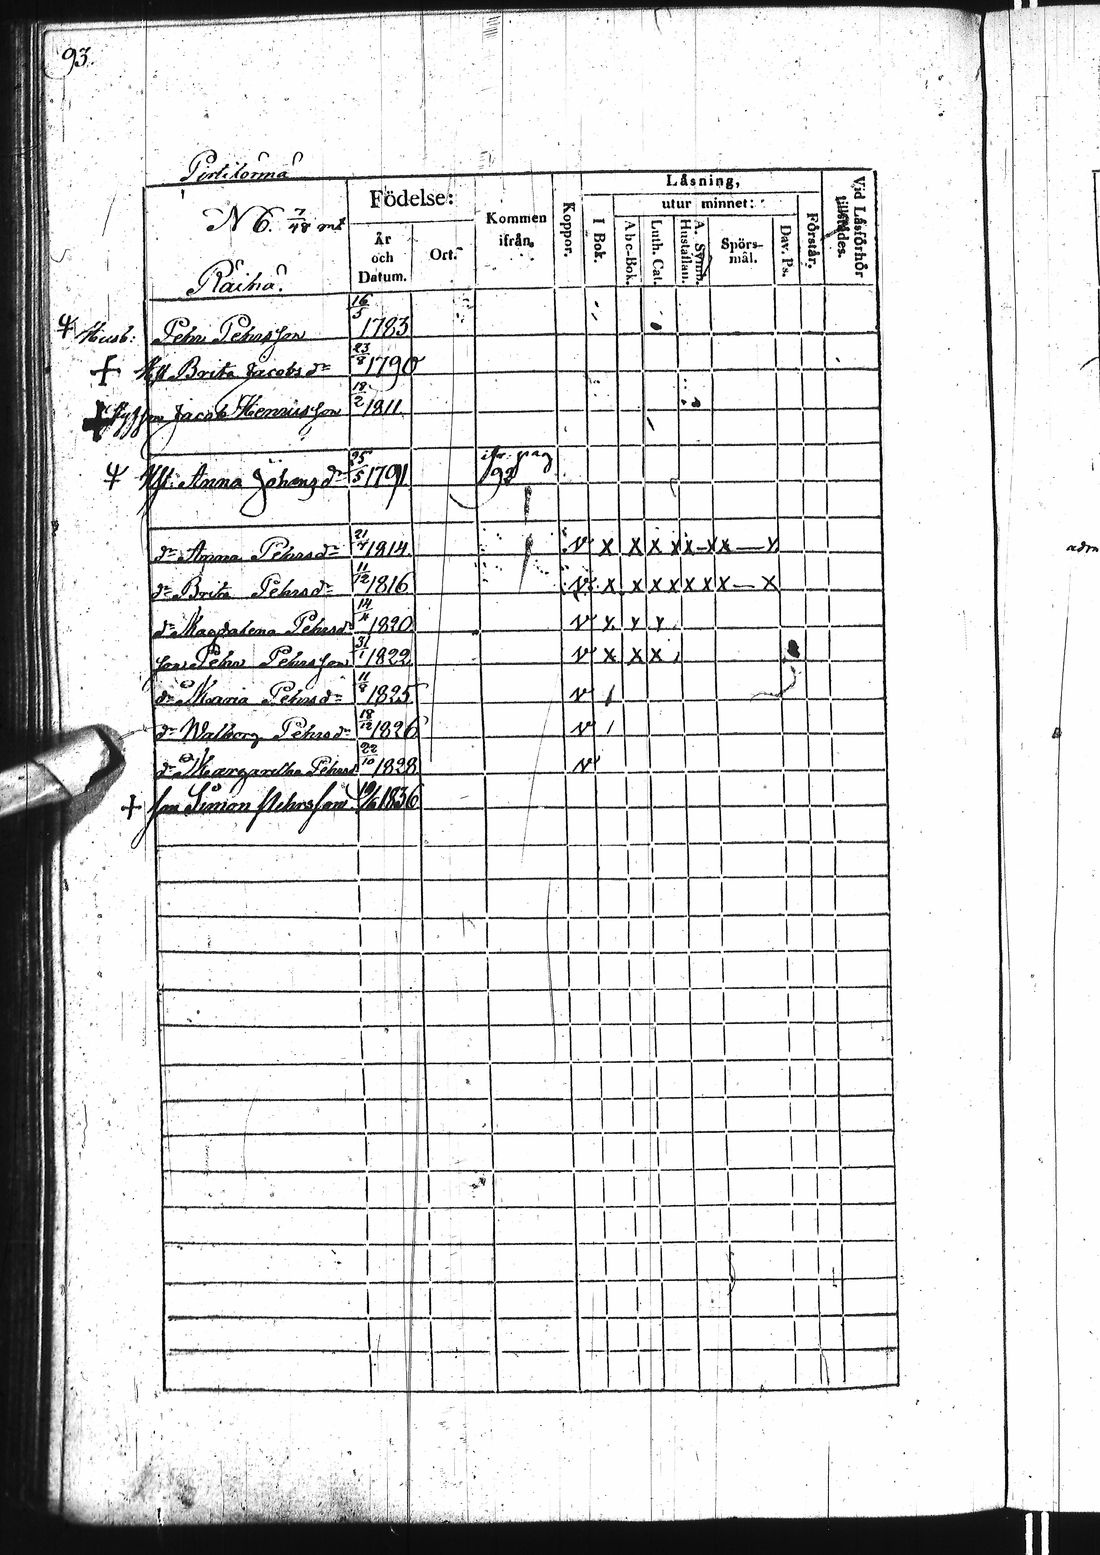 93.
Födelse:
Kommen ifrån.
Koppor.
Läsning,
I Bok.
utur minnet:
Abc-Bok.
Luth. Cat.
Hustaflan.
A. Symb.
Spörs-mål.
Dav. Ps.
Förstår.
Vid Läsförhör tillstädes.
År och Datum.
Ort.
N 6. 7/48 mt
Räihä.
Husb: Pehr Pehrsson 16/5 1783
Hu Brita Jacobsdr 23/8 1790
Jacob Henricsson 18/2 1811
Anna Johansdr 25/5 1791 ifr. pag 92
dr Anna Pehrsdr 21/4 1814 v x x x x x x x x
dr Brita Pehrsdr 11/12 1816 v x x x x x x x x
dr Magdalena Pehrsdr 14/4 1820 v x x x
son Pehr Pehrsson 31/1 1822 v x x x
dr Maria Pehrsdr 11/8 1825 v /
dr Walborg Pehrsdr 18/12 1826 v /
dr Margaretha Pehrsd 22/10 1828 v
+ son Simon Pehrsson 19/6 1836